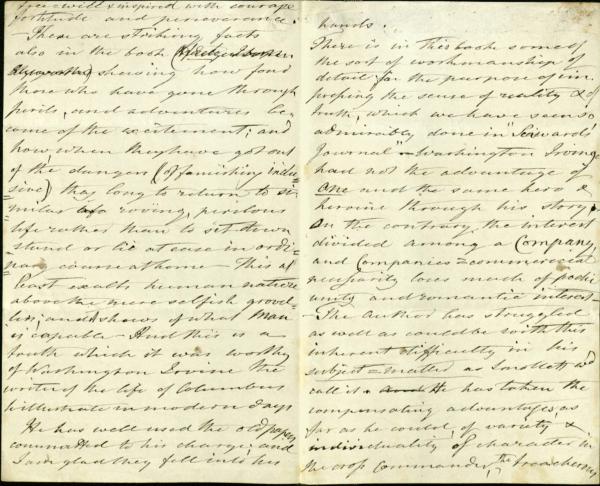 free will & inspired with courage
fortitude and perseverance.
— There are striking facts
also in the book
shewing how fond
those who have gone through
perils, and adventures be-
come of the excitement; and
how when they have got out
of the dangers (of famishing inclu-
sive) they long to return to si-
milar roving, perilous
life rather than to set down
stand or lie at ease in ordi-
nary course at home — This at
least exalts human nature
above the mere selfish grovel-
lers; and shows of what Man
is capable — And this is a
truth which it was worthy
of Washington Irvine the
writer of the life of Columbus
to illustrate in modern days
He has well used the old papers
committed to his charge; and
I am glad they fell into his
hands.
There is in this book some of
the sort of workmanship of
detail for the purpose of im-
pressing the sense of reality & of
truth, which we have seen so
admirably done in "Sewards
Journal" — Washington Irving
had not the advantage of
one and the same hero &
heroine through his story.
On the contrary, the interest
divided among a Company,
and Companies = commercial
necessarily loses much of
unity and romantic interest —
— The Author has struggled
as well as could be with this
inherent difficulty in his
subject = matter as Smollett wd
call it. He has taken the
compensating advantages, as
far as he could, of variety &
individuality of character in
the cross Commander, the treacherous